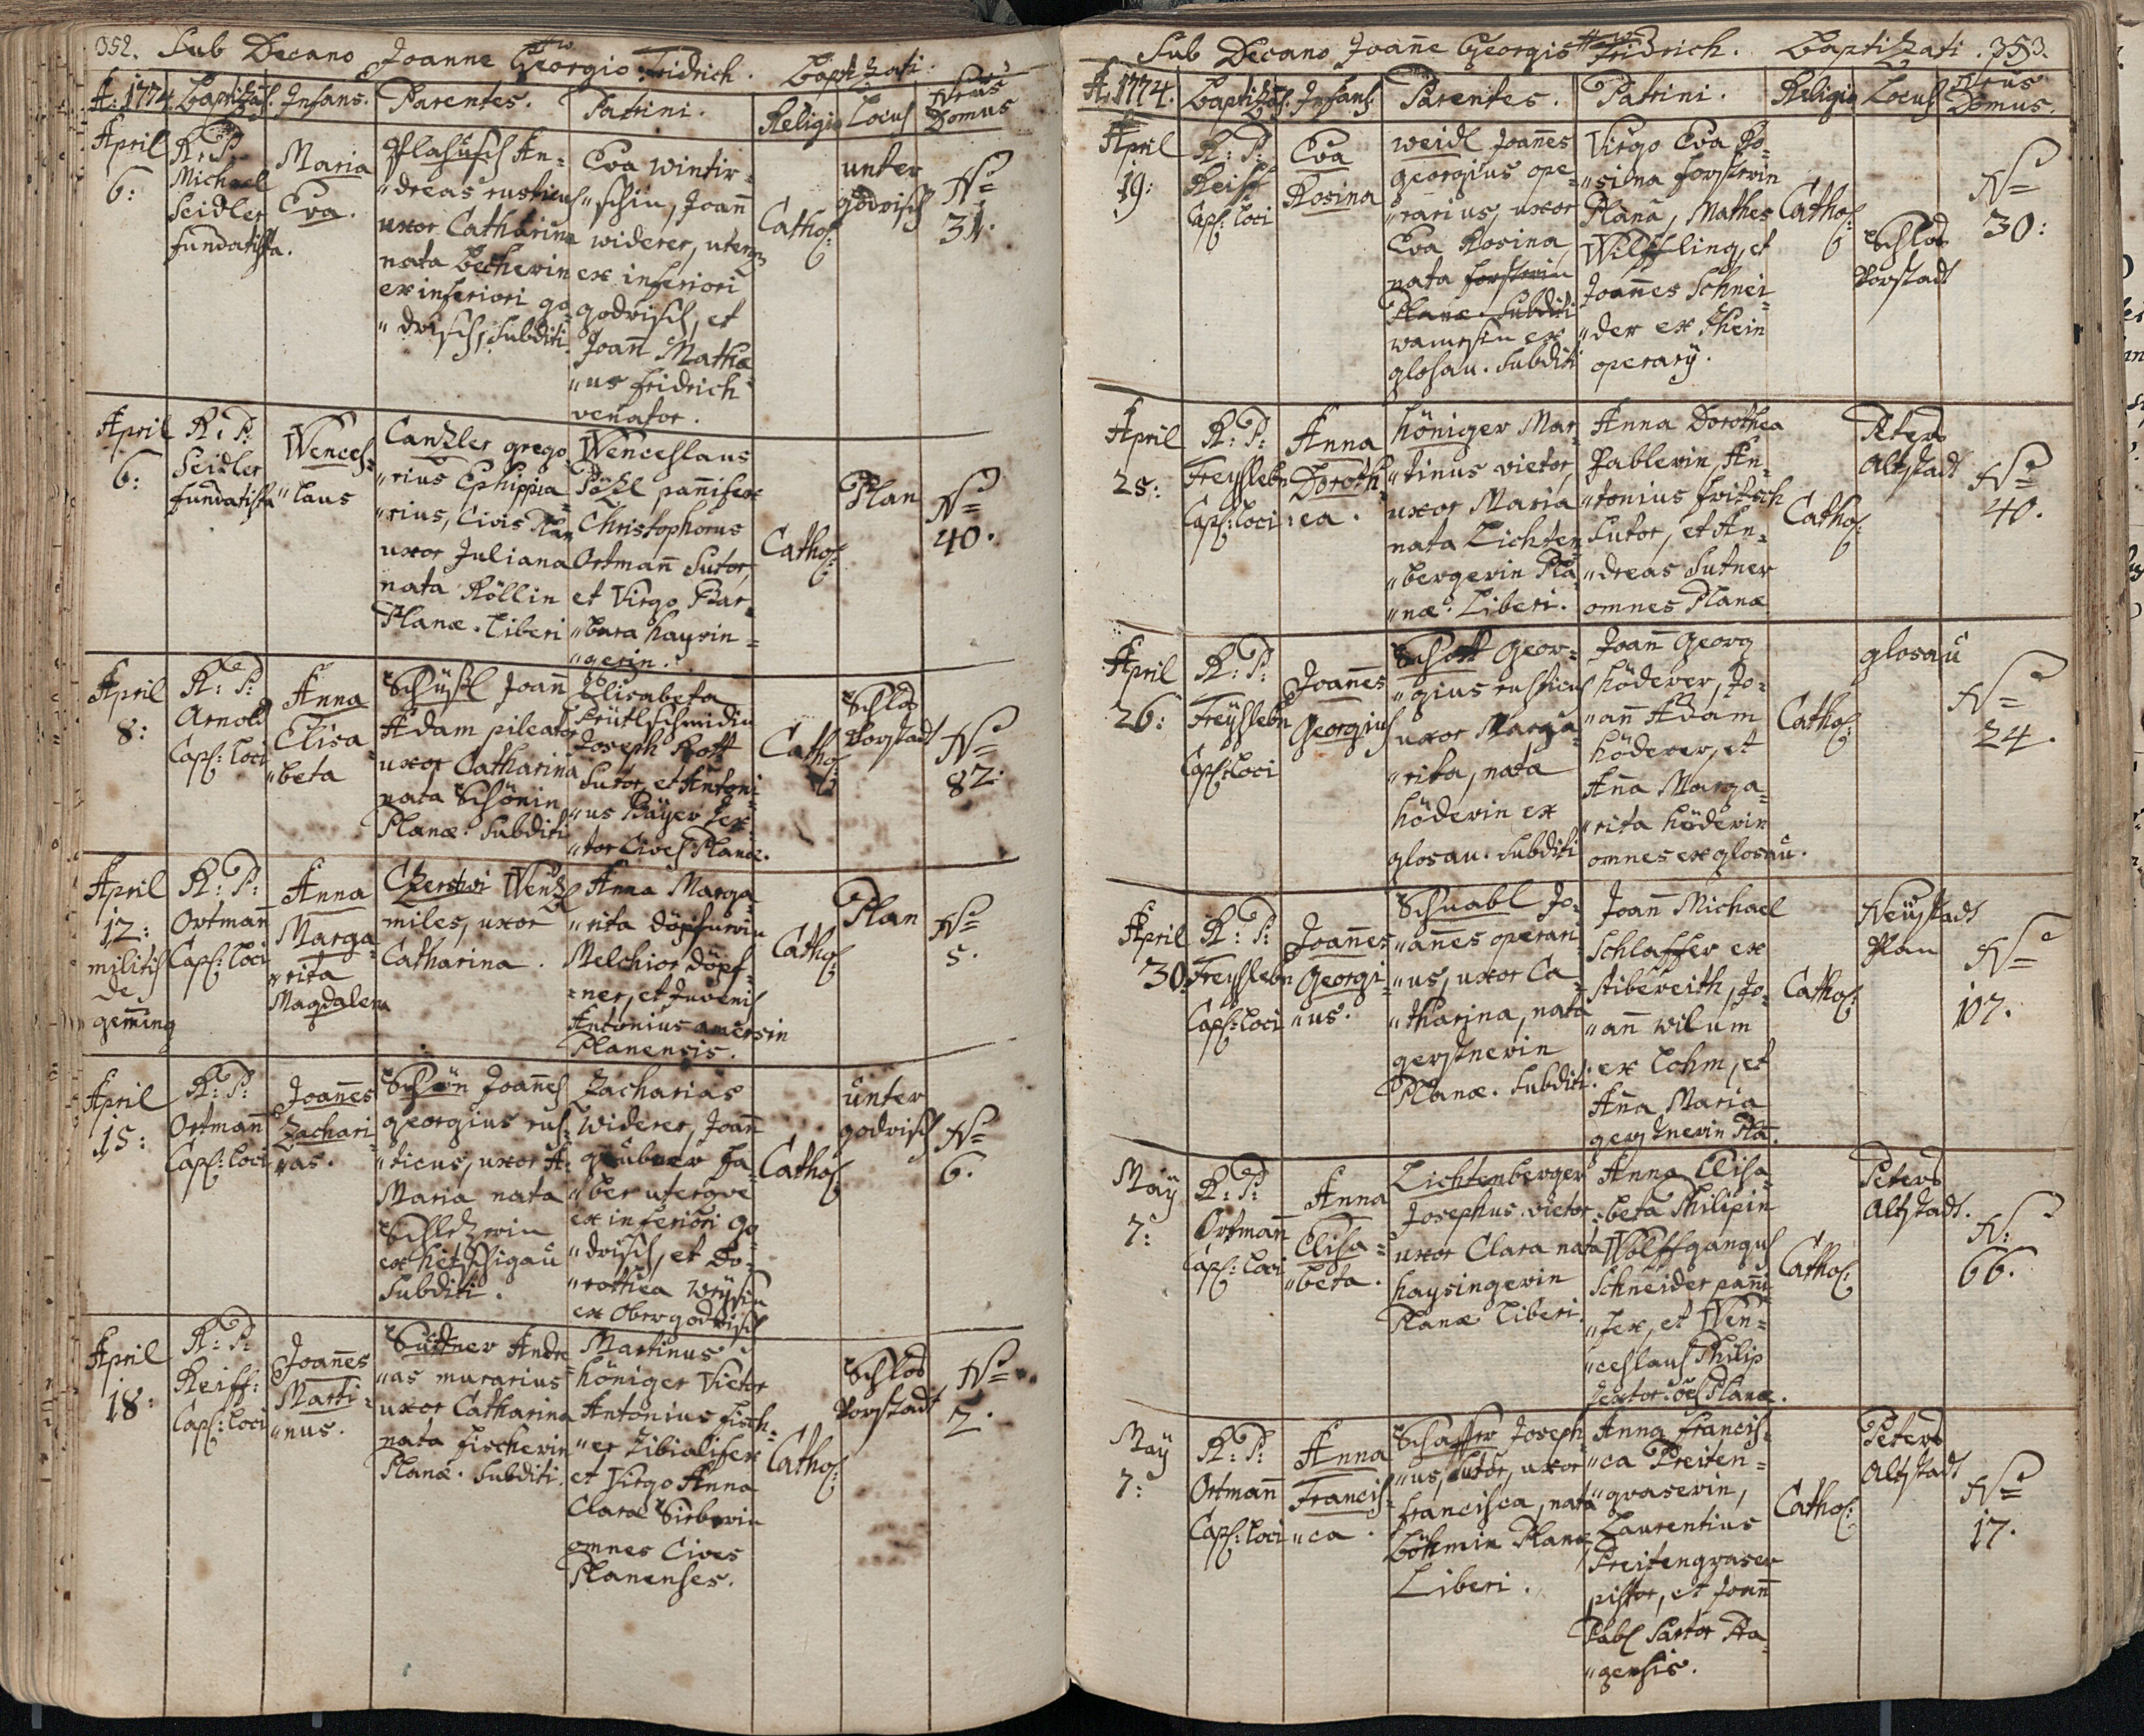 352. Sub Decano Joanne Georgio Fridrich. Baptizati.
A. 1774. Baptizās. Infans. Parentes. Patrini. Religio Locus Nrus Domus
April
6:
R: P:
Michael
Seidler
fundatista.
Maria
Eva.
Plahusch An=
"dreas rusticus
uxor Catharina
nata Becherin
ex inferiori go=
"drisch, Subditi.
Eva Wintir=
"schin, Joañ
widerer, uterq
ex inferiori
godrisch, et
Joañ Mathæ
"us Fridrich
venator.
Cathol:
unter
godrisch
N=
31.
April
6:
R: P:
Seidler
fundatista
Wences=
"laus
Canzler grego
"rius Ephippia
"rius, Civis Plan
uxor Juliana
nata Röllin
Planæ. Liberi
Wenceslaus
Pözl pañifex
Christophorus
Ortmañ Sutor,
et Virgo Bar=
"bara haysin=
"gerin.
Cathol:
Plan
N=
40.
April
8:
R: P:
Arnold
Capl: loci
Anna
Elisa
"beta
Schüsl Joañ
Adam pileator
uxor Catharina
nata Schönin
Planæ. Subditi
Elisabeta
Prütlschmidin
Joseph Rott
Sutor, et Antoni
"us Bäyer Tex
"tor Cives Planæ.
Cathol:
Schlos
Vorstadt
N=
82.
April
12:
militis
de
gem̄ing
R: P:
Ortmañ
Capl: loci
Anna
Marga
"rita
Magdalena
Wentzl
miles, uxor
Catharina.
Anna Marga
"rita döpfnerin
Melchior döpf=
=ner, et Juvenis
Antonius
Planensis.
Cathol:
Plan
N=
5.
April
15:
R: P:
Ortmañ
Capl: loci
Joañes
Zachari
"as.
Schön Joañes
georgius rus=
"ticus, uxor A:
Maria nata
ex hetschigau
Subditi.
Zacharias
widerer, Joañ
grübner fa=
"ber uterqve
ex inferiori go=
"drisch, et Do=
"rothea
ex Obergodrisch
Cathol:
unter
godrisch
N=
6.
April
18:
R: P:
Reiff:
Capl: loci
Joañes
Marti=
"nus.
Suttner Andre
"as murarius
uxor Catharina
nata Fischerin
Planæ. Subditi.
Martinus
höniger Vietor
Antonius Fisch=
"er tibialifex
et Virgo Anna
Clara Sieberin
omnes Cives
Planenses.
Cathol:
Schlos
Vorstadt
N=
2.
Sub Decano Joañe Georgio Fridrich. Baptizati. 353.
A. 1774. Baptizās. Infans. Parentes. Patrini. Religio Locus Nrus Domus.
April
19:
R: P:
Reiff
Capl: loci
Eva
Rosina
weidl Joañes
georgius ope=
"rarius, uxor
Eva Rosina,
nata forsterin
Planæ. Subditi
ex
glosau. Subditi
Virgo Eva Ro=
"sina forsterin
Planā, Mathes
Wilffling, et
Joañes Schnei=
"der ex Thein
operarÿ.
Cathol:
Schlos
Vorstadt
N=
30:
April
25:
R: P:
Freysleben
Capl: loci
Anna
Doroth
"ea.
höniger Mar=
"tinus vietor,
uxor Maria
nata Lichten
"bergerin Pla
"næ. Liberi.
Anna Dorothea
Pablerin, An=
"tonius Fritsch
Sutor, et An=
"dreas Sutner
omnes Planæ
Cathol:
Peters
Altstadt
N=
40.
April
26:
R: P:
Freysleben
Capl: loci
Joañes
Georgius
Schott Geor=
"gius rusticus
uxor Marga=
"rita, nata
höderin ex
glosau. Subditi
Joañ Georg
höderer, Jo=
"añ Adam
höderer, et
Aña Marga=
"rita höderin
omnes ex glosau.
Cathol:
glosau
N=
24.
April
30:
R: P:
Freysleben
Capl: loci
Joañes
Georgi=
"us.
Schnabl Jo=
"añes operari
"us, uxor Ca=
"tharina, nata
gerstnerin
Planæ. Subditi.
Joañ Michael
Schlaffer ex
stibereith, Jo=
"añ wilum
ex Lohm, et
Aña Maria
gerstnerin Pla.
Cathol:
Neüstadt
Plan
N=
107.
Maÿ
7:
R: P:
Ortmañ
Capl: loci
Anna
Elisa=
"beta.
Lichtenberger
Josephus vietor
uxor Clara nata
haysingerin
Planæ Liberi.
Anna Elisa=
=beta Philipin
Wolffgangus
Schneider pañi
"fex, et Wen=
"ceslaus Philip
textor oēs Planæ.
Cathol:
Peters
Altstadt.
N:
66.
Maÿ
7:
R: P:
Ortmañ
Capl: loci
Anna
Francis=
"ca.
Schaffer Joseph
"us, sutor, uxor
Francisca, nata
Böhmin Planæ
Liberi.
Anna Francis=
"ca Breiten=
"graserin,
Laurentius
Breitengraser
pistor, et Joañ
Pabl Sartor Pra
"gensis.
Cathol:
Peters
Altstadt
N=
17.